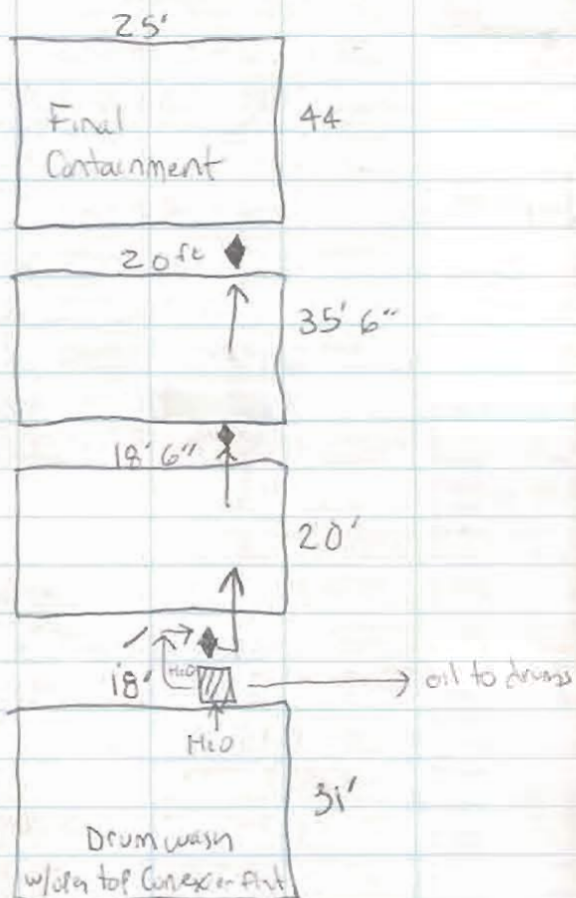 25'
Final
Containment
44
20 ft
35' 6"
18' 6"
20'
H2O
18'
oil to drums
H2O
31'
Drum wash
w/open top Conex or